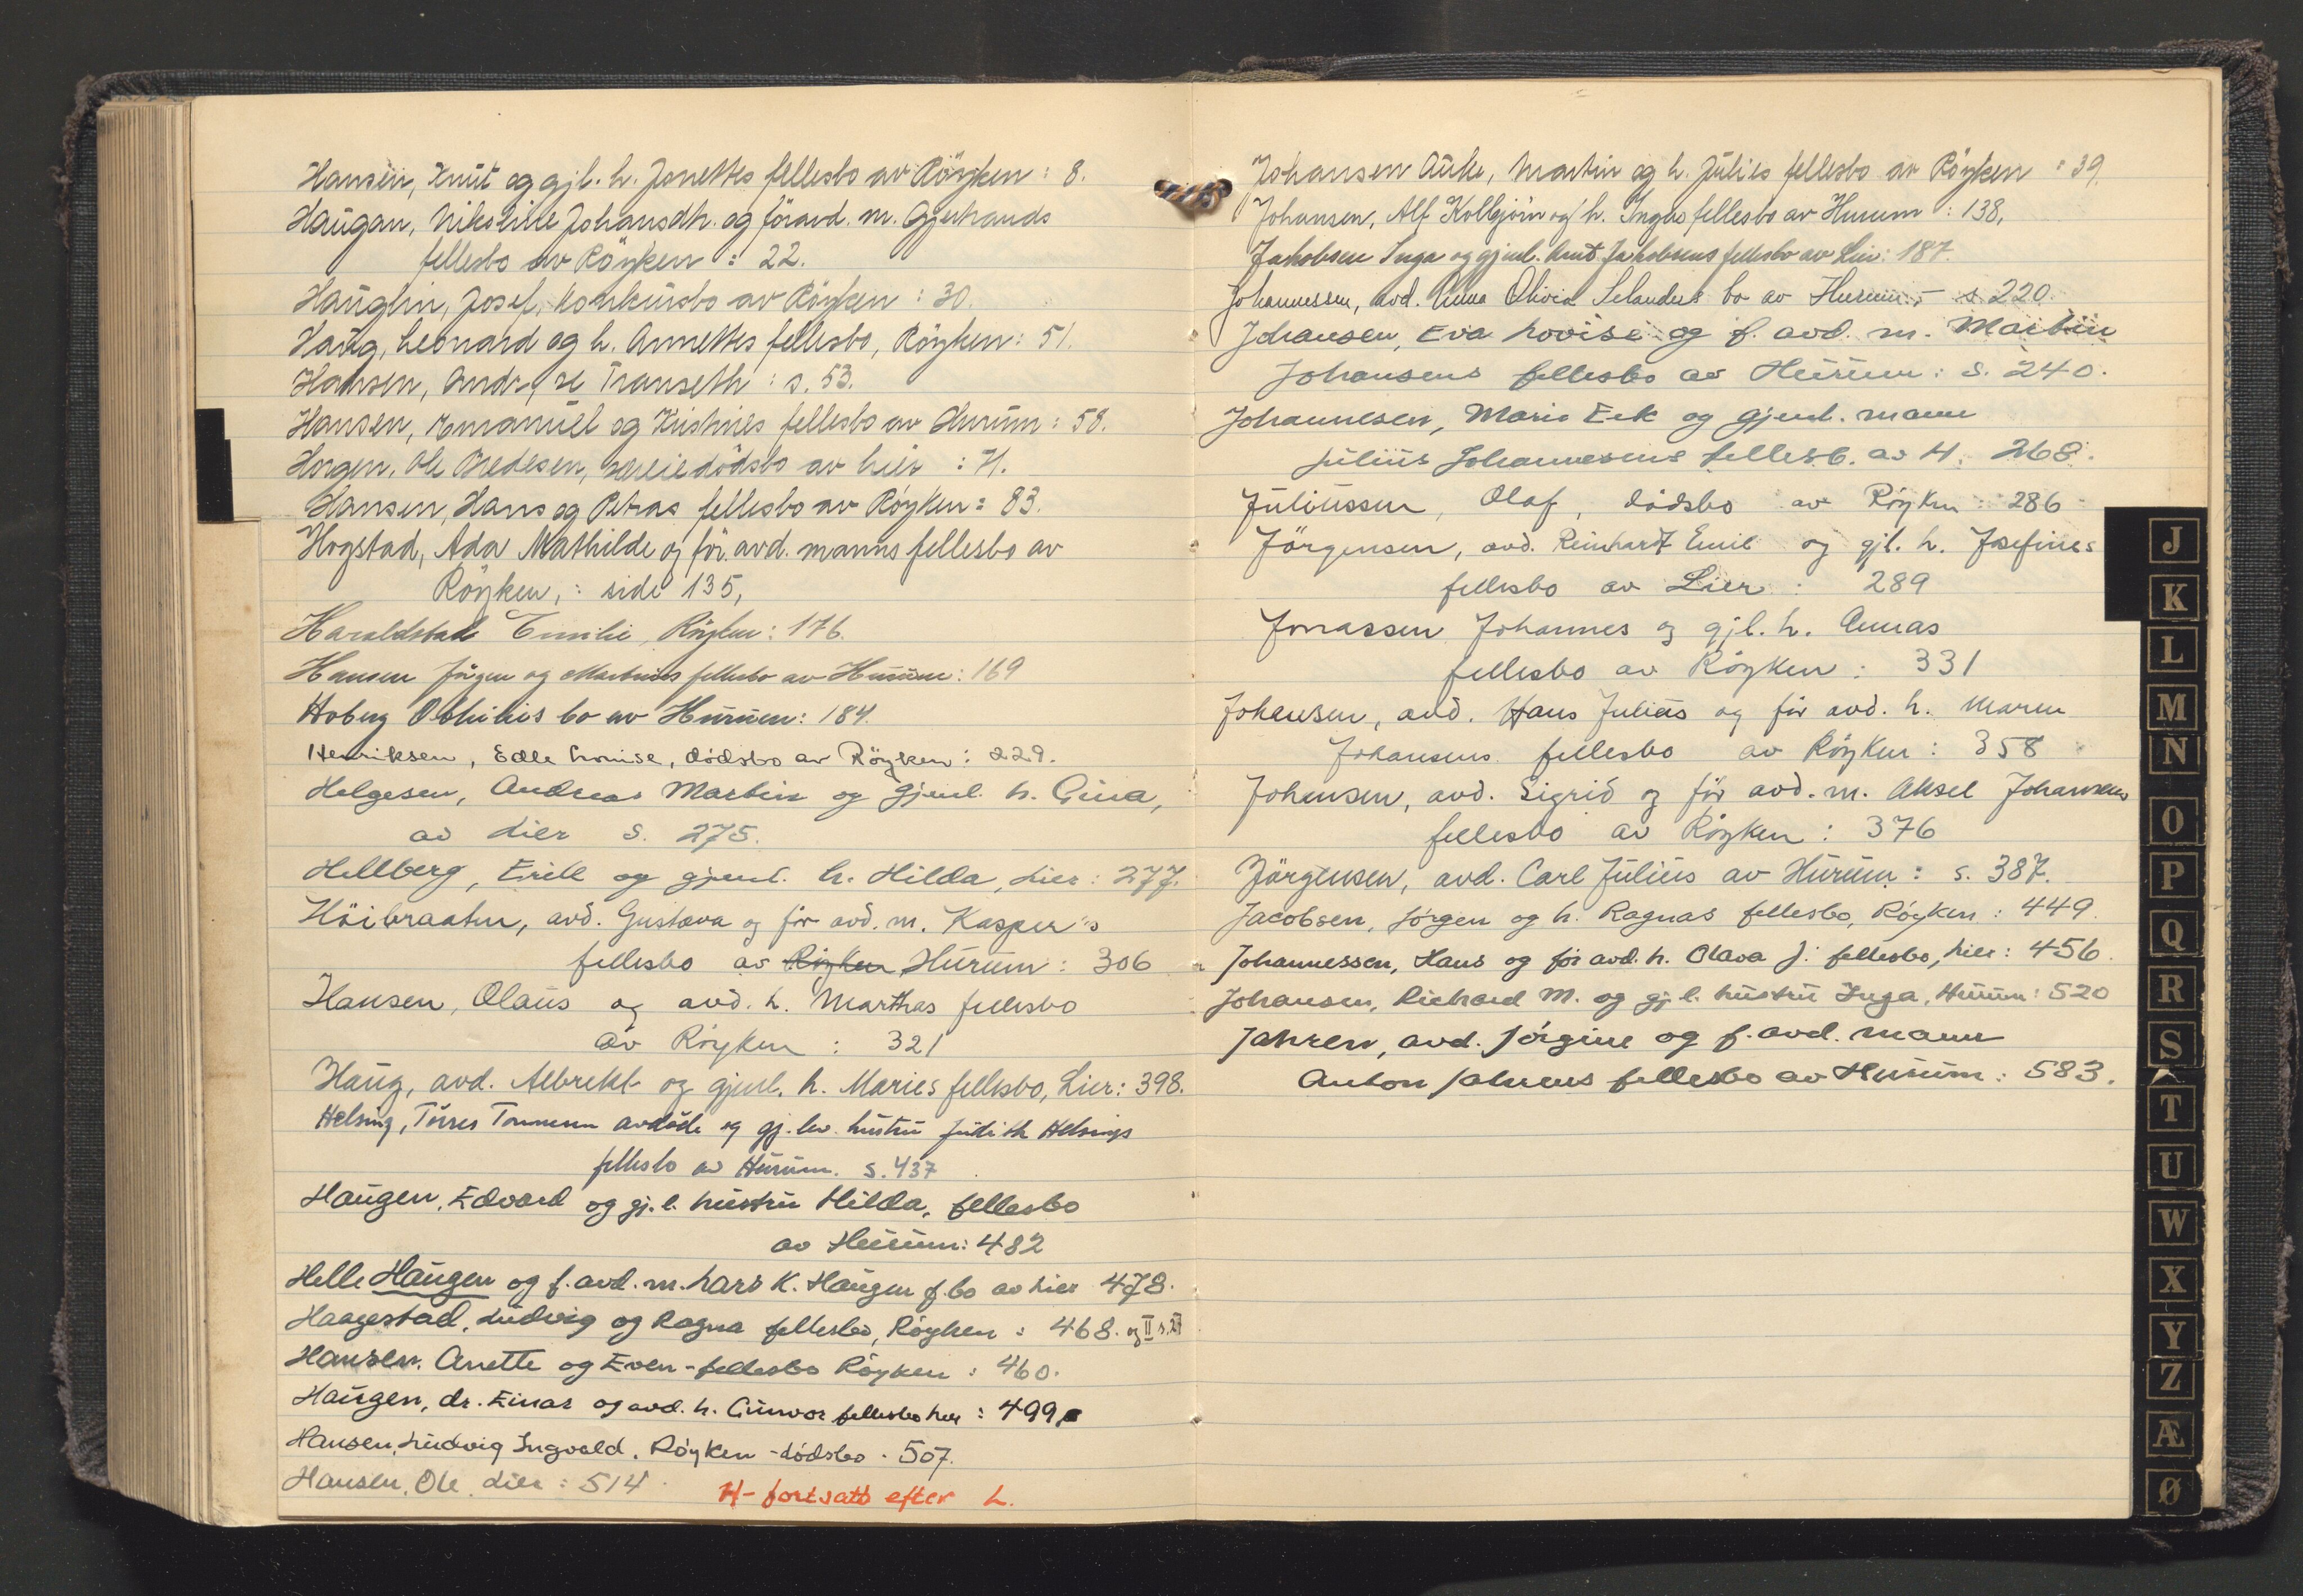 Hansen, Knut og gjl. h. Jonettes fellesbo av Röyken : 8.
Haugan, Nikoline Johansdh. ogför avd. m. Gjerhands
fellesbo av Röyken : 22.
Hauglin, Josef, konkursbo av Röyken : 30.
Haug, Leonard og h. Annettes fellesbo, Röyken : 51.
Hansen, Andr., se Transeth : s. 53.
Hansen, Emanuel og Kristines fellesbo av Hurum : 58.
Horgen, Ole Bredesen, særeie dödsbo av Lier : 71.
Hansen, Hans og Petras fellesbo av Röyken : 83.
Hogstad, Ada Mathilde og för avd. manns fellesbo av
Röyken, : side 135,
Haraldstad Emilie, Röyken : 176.
Hansen Jörgen og Martines fellesbo av Hurum : 169
Hoberg Othilies bo av Hurum : 184.
Henriksen, Edle Lovise, dödsbo av Röyken : 229.
Helgesen, Andreas Martin og gjenl. h. Gina,
av Lier s. 275.
Hellberg, Erik og gjenl. h. Hilda, Lier : 277.
Höibraaten, avd. Gustava og för avd. m. Kasper's
fellesbo av Röyken Hurum : 306
Hansen, Olaus og avd. h. Marthas fellesbo
av Röyken : 321
Haug, avd. Albrekt og gjenl. h. Maries fellesbo, Lier : 398.
Helsing, Törres avdöde og gj. lev. hustru Judith Helsings
fellesbo av Hurum. s. 437
Haugen, Edvard og gj. l. hustru Hilda, fellesbo
av Hurum : 482
Helle Haugen og f. avd. m. Lars K. Haugen f.bo av Lier 478.
Haagestad, Ludvig og Ragna fellesbo, Röyken : 468. og II s. 27
Hansen, Anette og Even - fellesbo Röyken : 460.
Haugen, dr. Einar og avd. h. Gunvor fellesbo Lier : 499
Hansen, Ludvig Ingvald. Röyken - dödsbo - 507.
Hansen, Ole, Lier : 514
H - fortsatt efter L.
Johansen Auke, Martin og h. Julies fellesbo av Röyken : 39.
Johansen, Alf Kolbjörn og h. Ingas fellesbo av Hurum : 138,
Jakobsen Inga og gjenl. Knut Jakobsens fellesbo av Lier : 187.
Johannessen, avd. Anna Olivia Selanders bo av Hurum, - s 220.
Johansen, Eva Lovise og f. avd. m. Martin
Johansens fellesbo av Hurum : s. 240.
Johannesen, Marie Eek og gjenl. mann
Julius Johannesens fellesb. av H. 268.
Juliussen, Olaf, dödsbo av Röyken : 286
Jörgensen, avd. Reinhardt Emil og gjl. h. Josefines
fellesbo av Lier : 289
Jonassen Johannes og gjl. h. Annas
fellesbo av Röyken : 331
Johansen, avd. Hans Julius og för avd. h. Maren
Johansens fellesbo av Röyken : 358
Johansen, avd. Sigrid og för avd. m. Aksel Johansens
fellesbo av Röyken : 376
Jörgensen, avd. Carl Julius av Hurum : s. 387.
Jacobsen, Jörgen og h. Ragnas fellesbo, Röyken : 449.
Johannessen, Hans og för avd. h. Olava J. fellesbo, Lier : 456.
Johansen, Richard M. og gj. l. hustru Inga, Hurum : 520
Jahren, avd. Jörgine og f. avd. mann
Anton Jahrens fellesbo av Hurum : 583.
J
K
L
M
N
O
P
Q
R
S
T
U
W
X
Y
Z
Æ
Ø